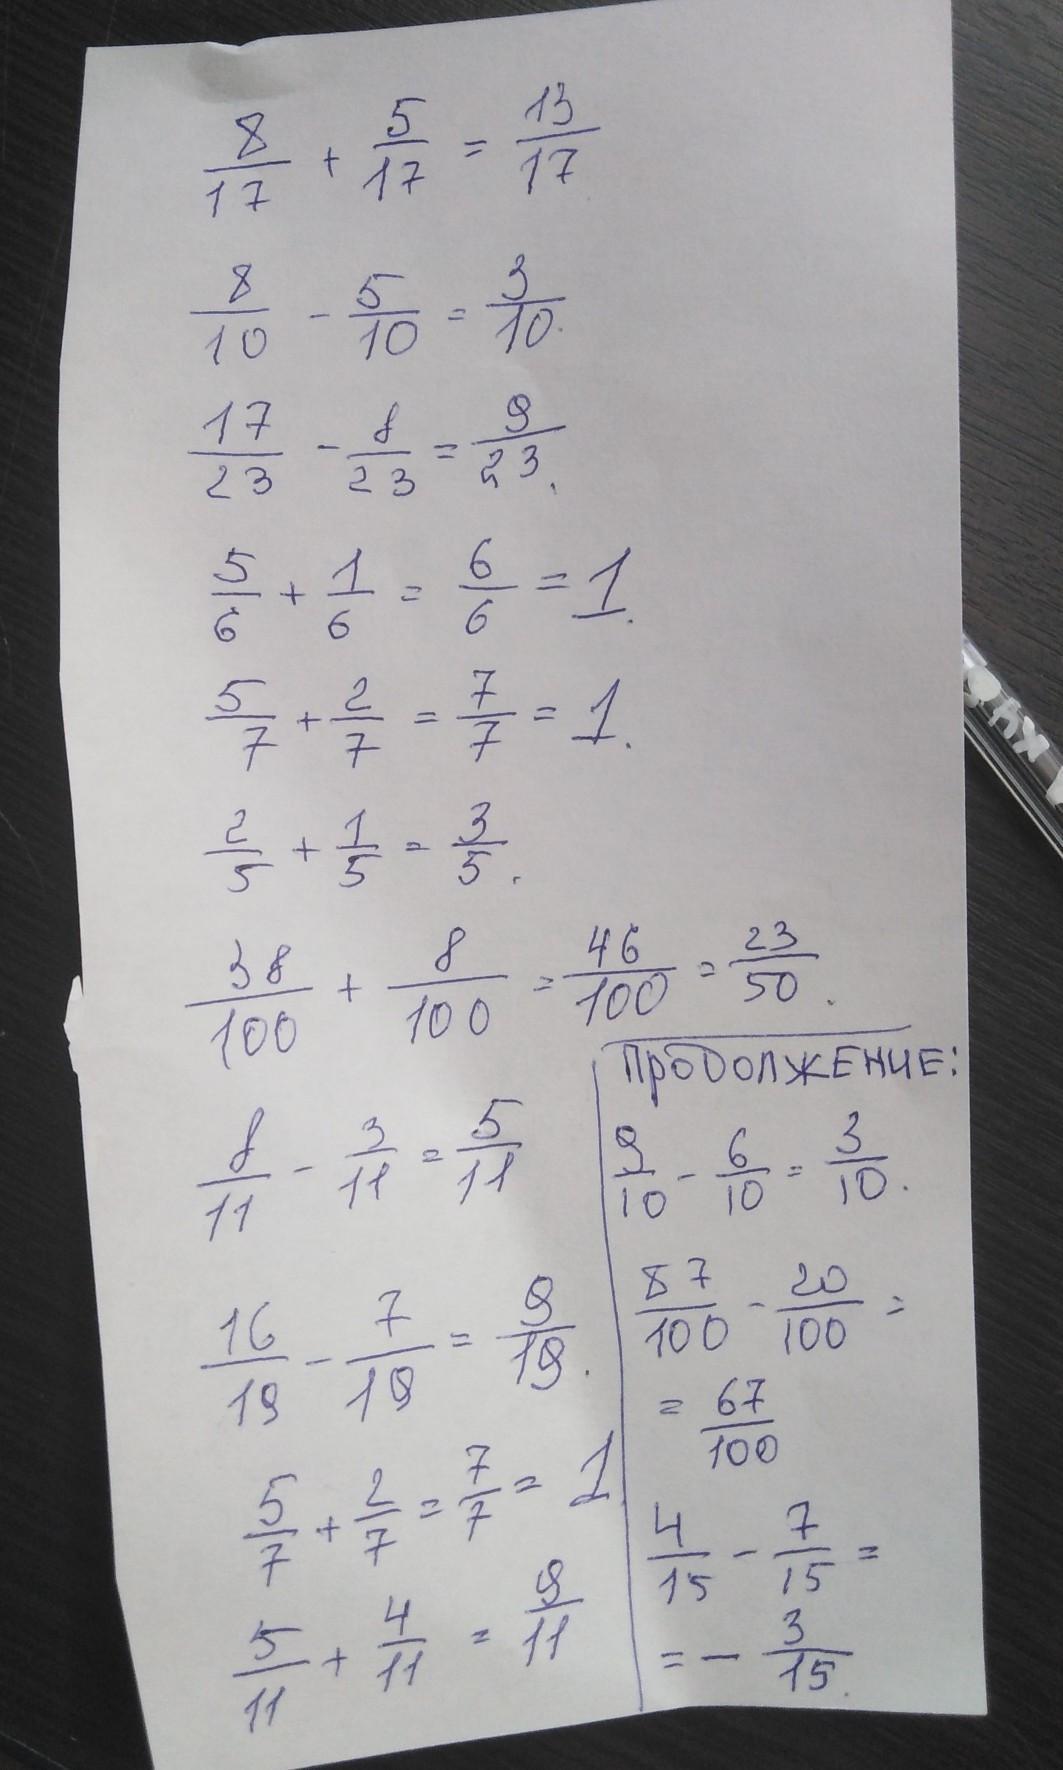 8/17 + 5/17 = 13/17
8/10 - 5/10 = 3/10.
17/23 - 8/23 = 9/23.
5/6 + 1/6 = 6/6 = 1.
5/7 + 2/7 = 7/7 = 1.
2/5 + 1/5 = 3/5.
38/100 + 8/100 = 46/100 = 23/50.
8/11 - 3/11 = 5/11
16/19 - 7/19 = 9/19.
5/7 + 2/7 = 7/7 = 1.
5/11 + 4/11 = 9/11
ПРОДОЛЖЕНИЕ:
9/10 - 6/10 = 3/10.
87/100 - 20/100 =
= 67/100
4/15 - 7/15 =
= - 3/15.